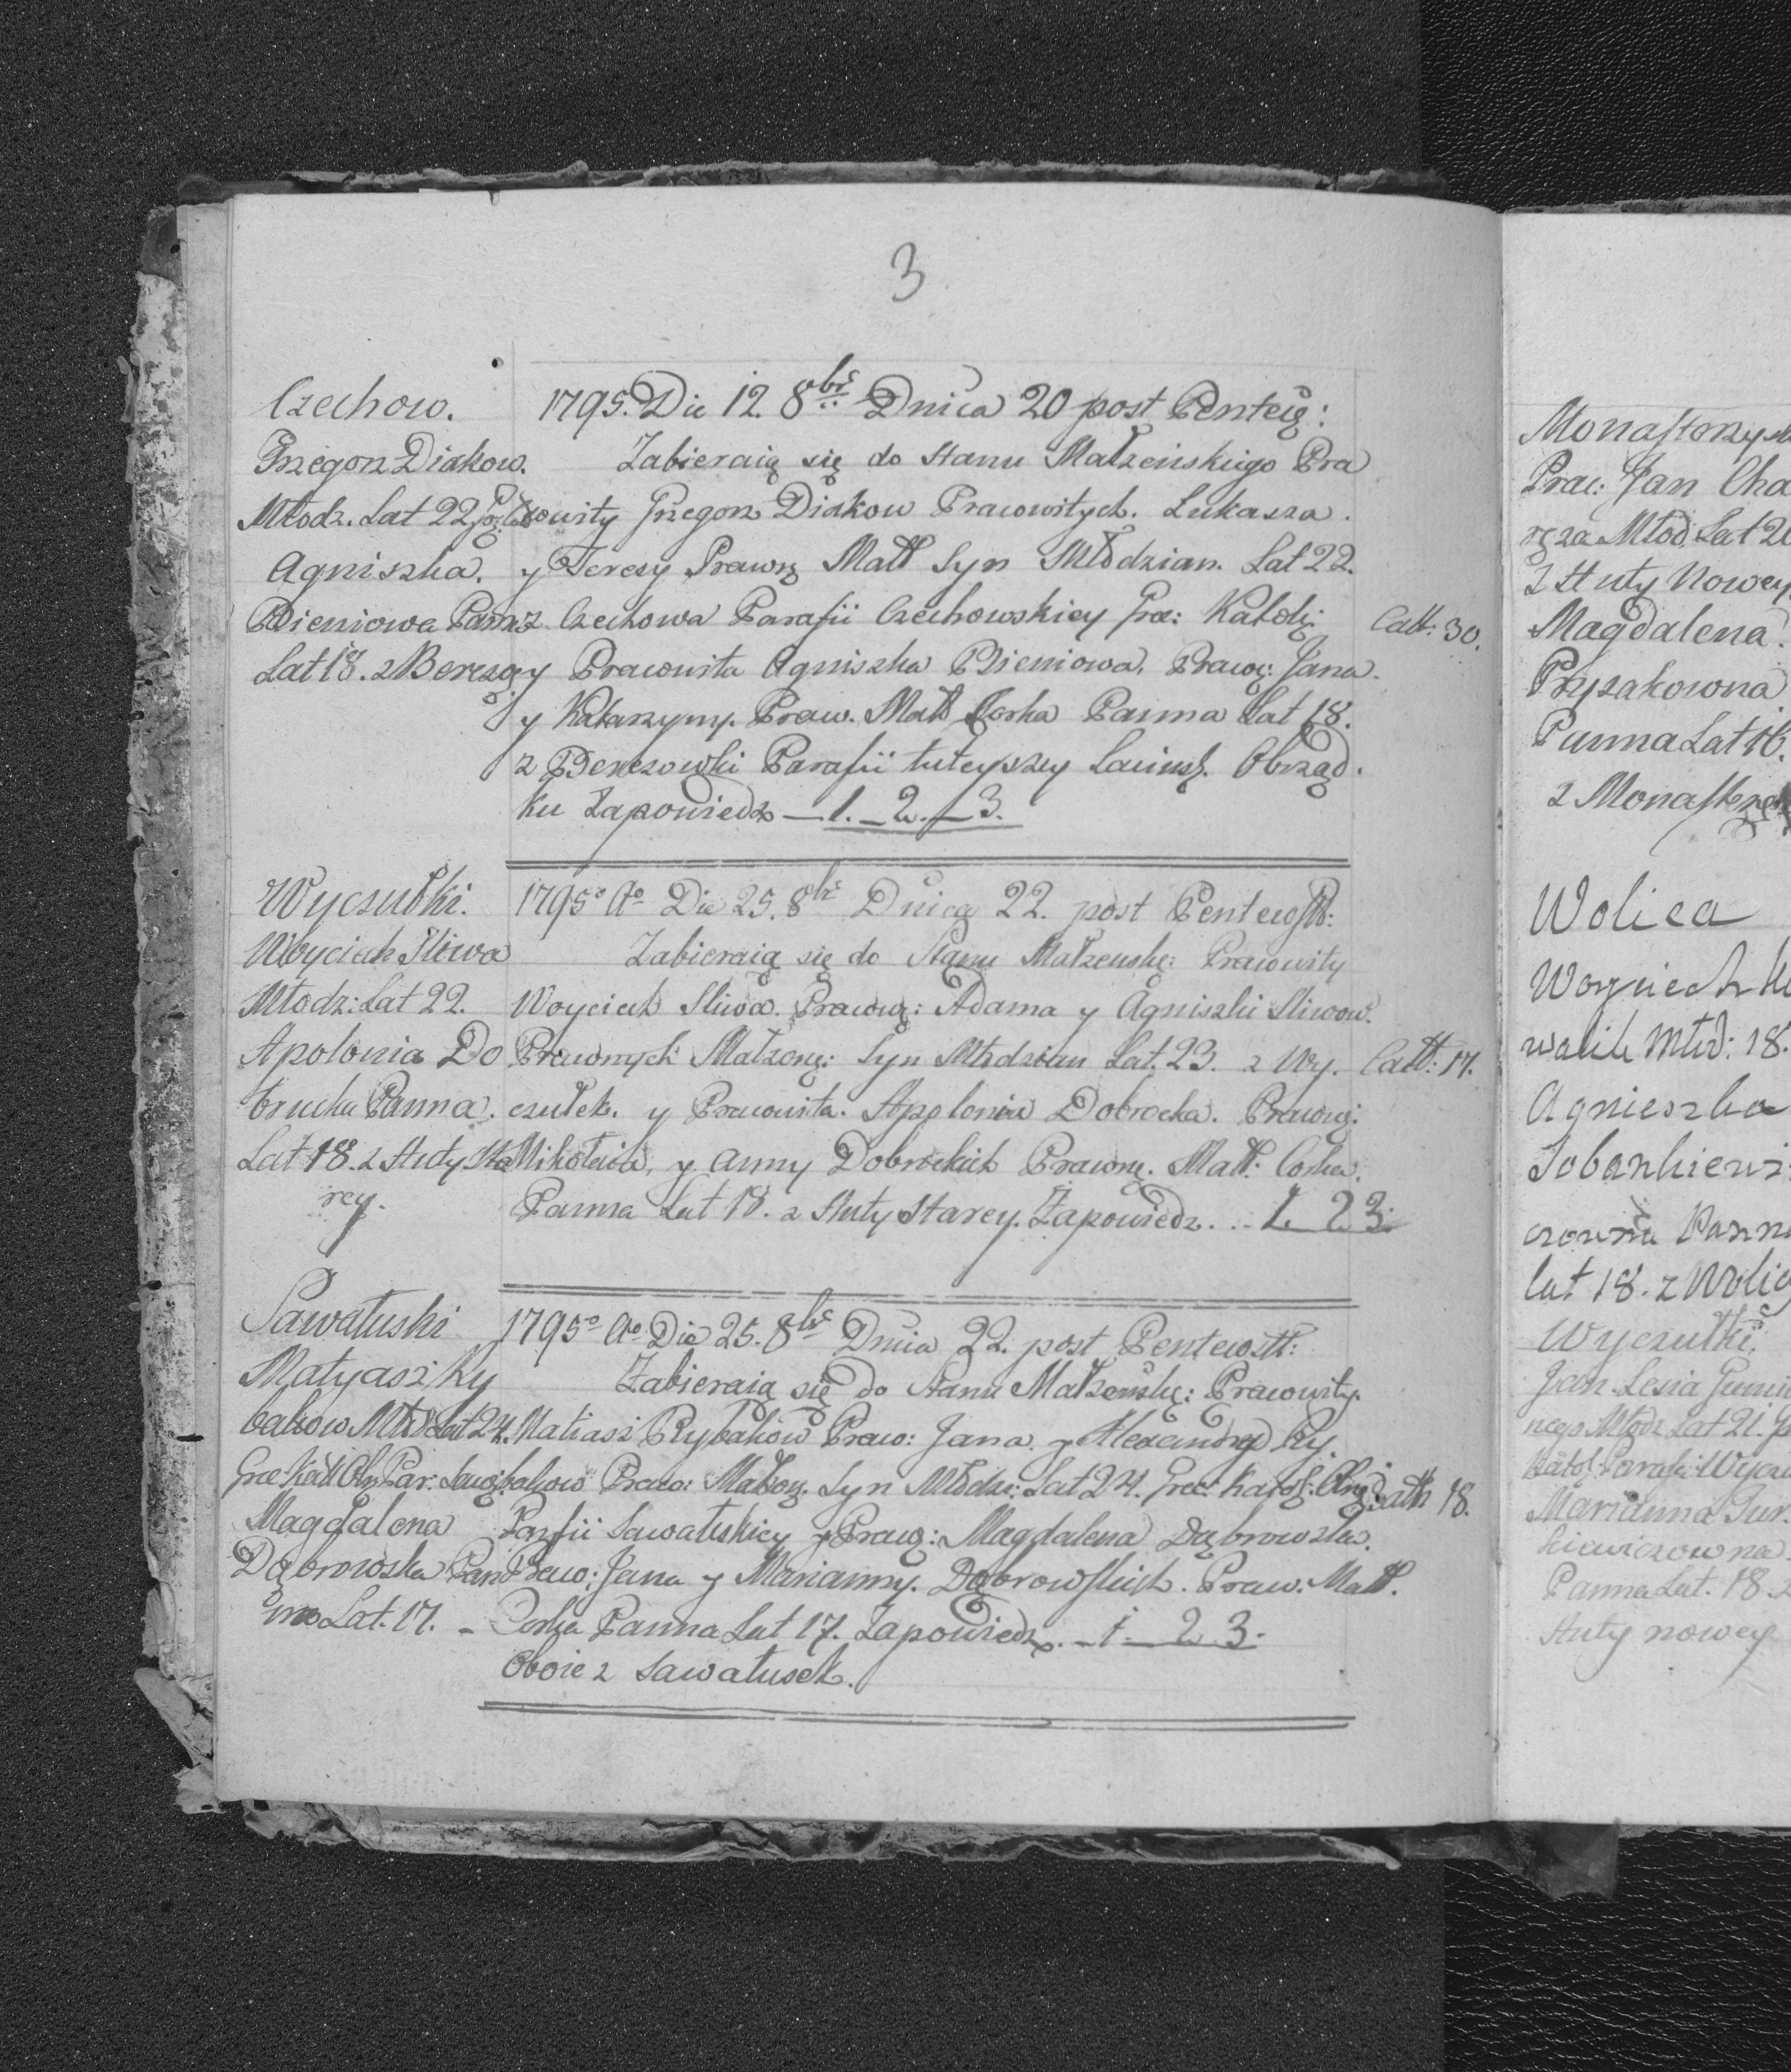 3
Czechow.
Grzegorz Diakow.
Młodz. Lat 22
Agniszka.
Bieniowa Panna
Lat 18. z Berezo
1795. Die 12. 8bris Dnica 20 post Pentec:
Zabieraią się do Stanu Małzeńskiego Pra
cowity Grzegorz Diakow Pracowitych. Lukasza.
y Teresy Prawny Matt Syn Młodzian. Lat 22.
z Czechowa Parafii Czechowskiey Grec: Katol:
y Pracowita Agniszka Bieniowa. Pracow: Jana.
y Katarzyny. Praw. Matt Corka Panna Lat 18.
z Berezowki Parafii tuteyszey Lacinsk. Obrząd.
ku Zapowiedz — 1. — 2. — 3.
Catt: 30.
Wyczułki.
Woyciech Sliwa
Młodz: Lat 22.
Apolonia Do
brucka Panna.
Lat 18. z Huty Sta
rey.
1795o Ao Die 25. 8bris Dnica 22. post Pentecost:
Zabieraią się do Stanu Małzenskie: Pracowity
Woyciech Sliwa. Pracow: Adama y Agniszki Sliwow.
Prawnych Małzon: Syn Młodzian Lat. 23. z Wy.
czułek. y Pracowita. Apolonia Dobrocka. Pracow:
Mikołaia, y Anny Dobrockich Prawne. Matt: Corka.
Panna Lat 18. z Huty Starey. Zapowiedz... 1. 2 3.
Catt: 17.
Sawałuski
Matyasz Ry
bakow Młod Lat 24.
Grec Katt Obr Par. Sawa:
Magdalena
Dąbrowska Pan
na Lat. 17.
1795o Ao Die 25. 8bris Dnica 22. post Pentecostt:
Zabieraią się do Stanu Małzenskie: Pracowity.
Matiasz Rybakow Praco: Jana. y Alexandry Ry.
bakow Praco: Małzon: Syn Młodz: Lat 24. Grec: Katol: Obrz:
Parfii Sawałuskiey y Prac: Magdalena Dąbrowska.
Praco: Jana y Marianny. Dąbrowskich. Praw: Matt.
Corka Panna Lat 17. Zapowiedz. — 1. — 2 3.
Oboie z Sawałusek.
Catth 18.
Monasterzysk
Prac: Jan Cha
ręza Młod. Lat 2
z Huty Nowey
Magdalena
Przysakowna
Panna Lat 16.
z Monasterz
Wolica
Woyciech
walik Młod: 18.
Agnieszka
Sobankiewi
czowna Pann
lat 18. z Wolic
Wyczułki
Jan. Lesia
nego Młodz Lat 21.
Katol: Parafii Wycz
Marianna Jur.
kiewiczowna
Panna Lat. 18
Huty nowey